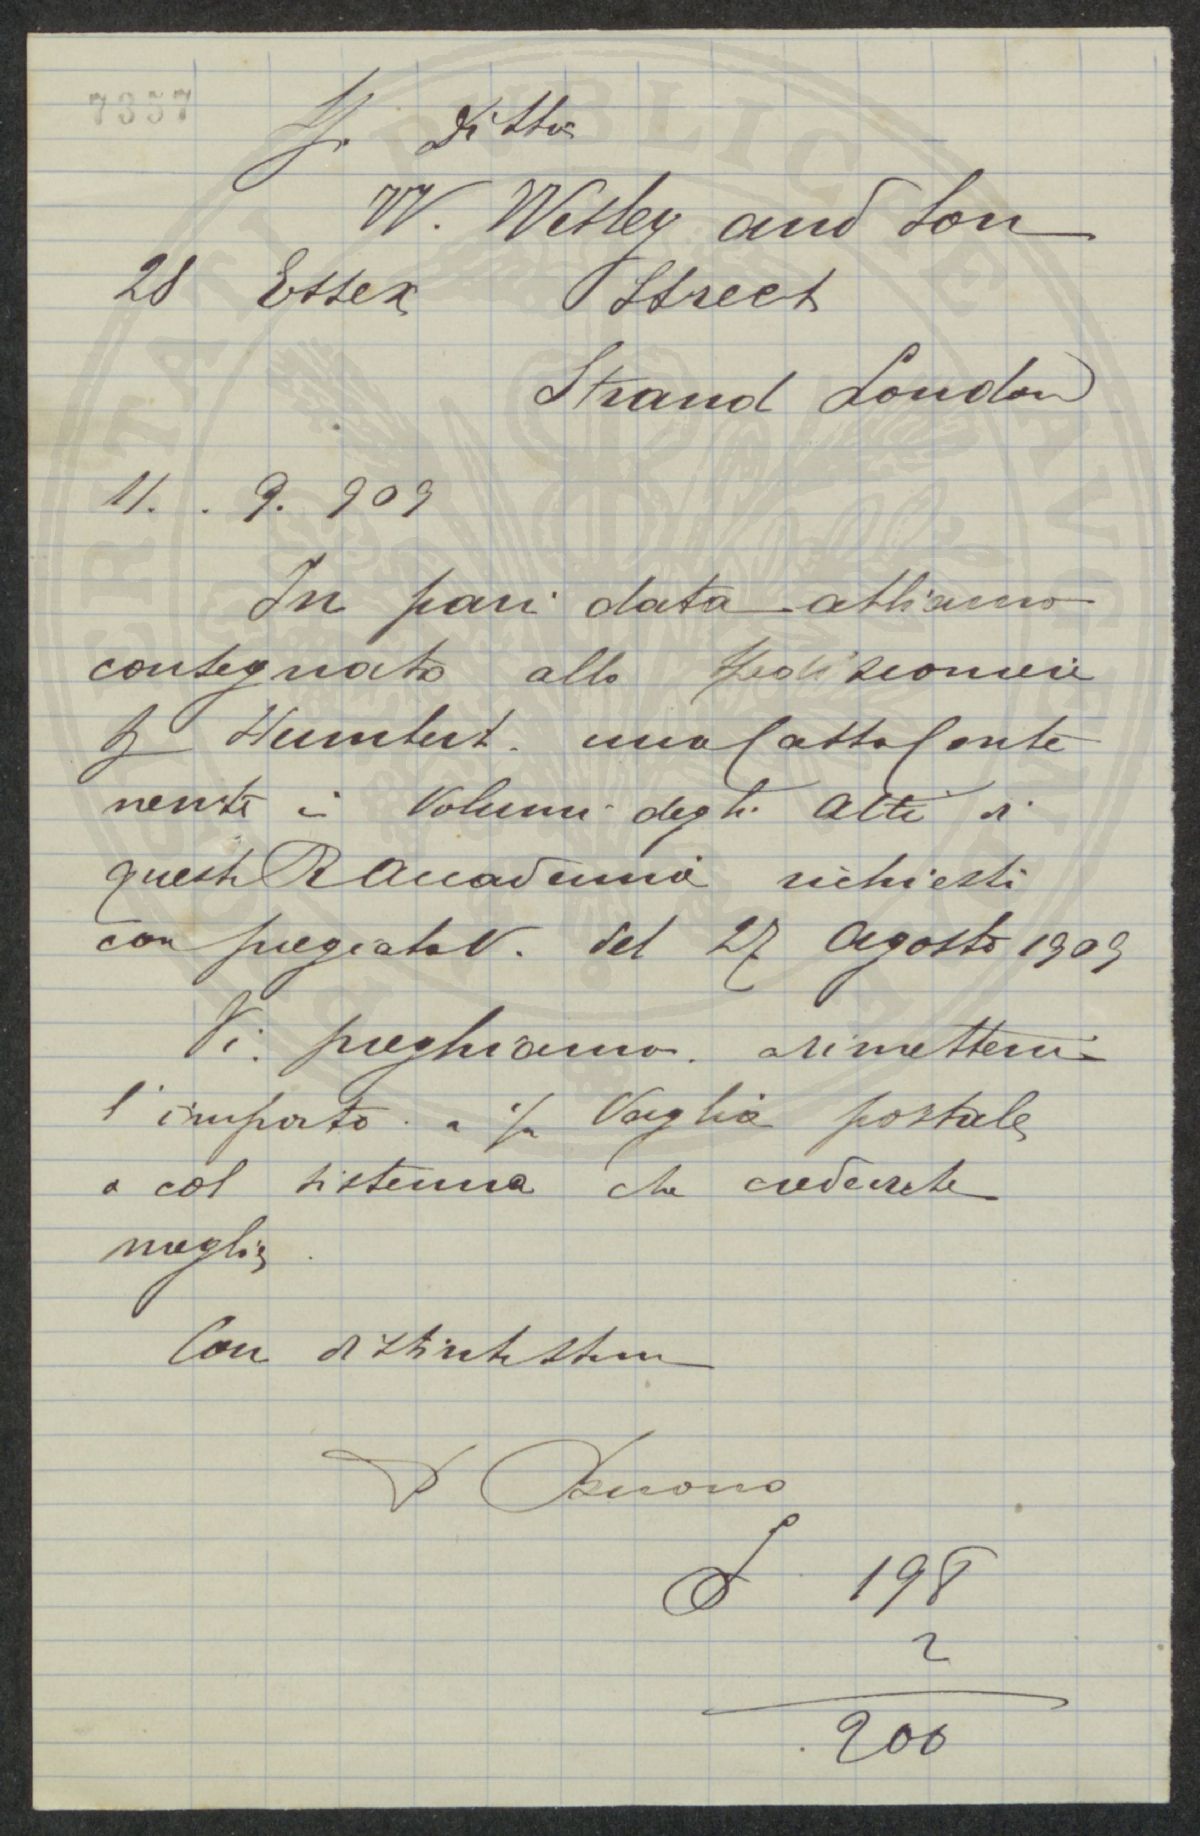 7357
Sp. Ditta
W. Wesley and Son
28 Essex Street
Strand London
11. . 9. 909
In pari data abbiamo
consegnato allo spedizioniere
Humbert. una Cassa Conte
nente i Volumi degli Atti di
questa R Accademia richiesti
con pregiata V. del 27 Agosto 1909
Vi. preghiamo. a rimetterci
l'importo. a Vaglia postale
o col sistema che crederete
meglio.
Con distinta stima
Buono
£ 198
2
200